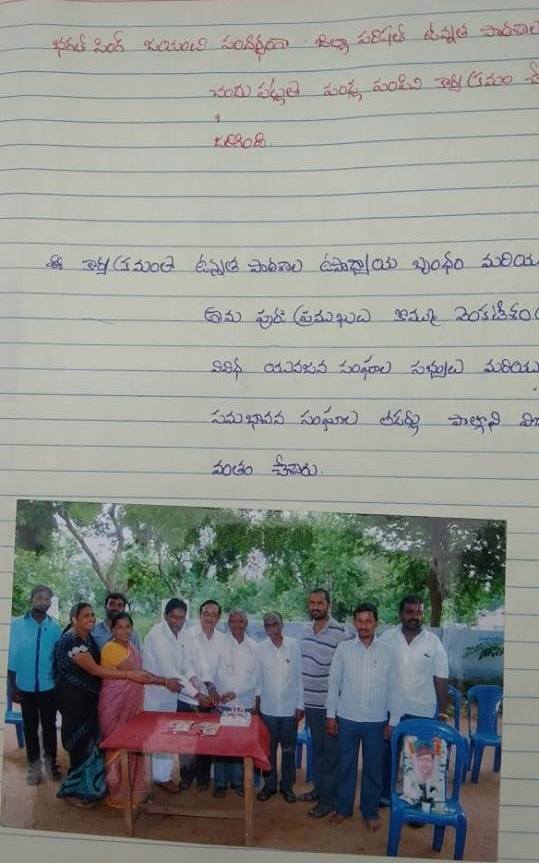 భగత్ సింగ్ జయంతి సందర్భంగా జిల్లా పరిషత్ ఉన్నత పాఠశాల
చందు పట్లత పండ్లు పంపిని కార్యక్రమం
జరిగింది.
ఈ కార్యక్రమంత ఉన్నత పాఠశాల ఉపాధ్యాయ బృంధం మరియు
పుర ప్రముఖుచ కొమ్ము వెంకటేశం
వివిధ యువజన సంఘాల సభ్యులు మరియు
సమభావన సంఘాల పాల్గొని
వంతం చేశారు.